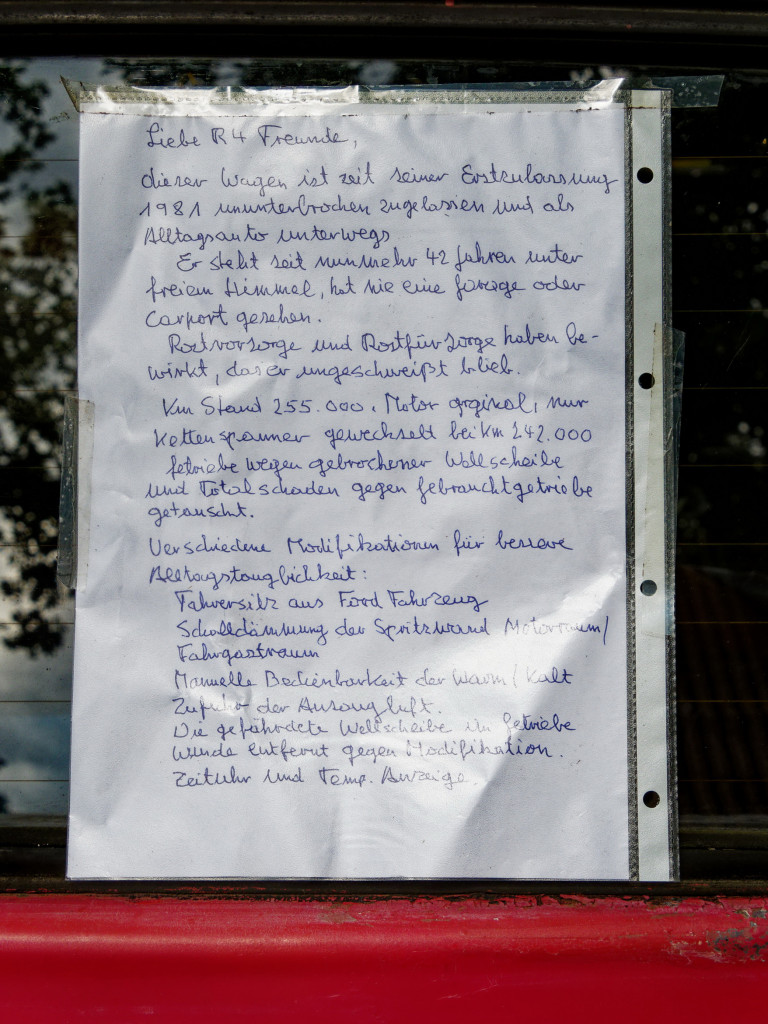 Liebe R4 Freunde,
dieser Wagen ist zeit seiner Erstzulassung
1981 ununterbrochen zugelassen und als
Alltagsauto unterwegs
Er steht seit nunmehr 42 Jahren unter
freiem Himmel, hat nie eine Garage oder
Carport gesehen.
Rostvorsorge und Rostfürsorge haben be-
wirkt, das er ungeschweißt blieb.
Km Stand 255.000. Motor orginal, nur
Kettenspanner gewechselt bei Km 242.000
Getriebe wegen gebrochener Wellscheibe
und Totalschaden gegen Gebrauchtgetriebe
getauscht.
Verschiedene Modifikationen für bessere
Alltagstauglichkeit:
Fahrersitz aus Ford Fahrzeug
Schalldämmung der Spritzwand Motorraum/
Fahrgastraum
Manuelle Bedienbarkeit der Warm/Kalt
Zufuhr der Ansaugluft.
Die gefährdete Wellscheibe im Getriebe
wurde entfernt gegen Modifikation.
Zeituhr und Temp. Anzeige.